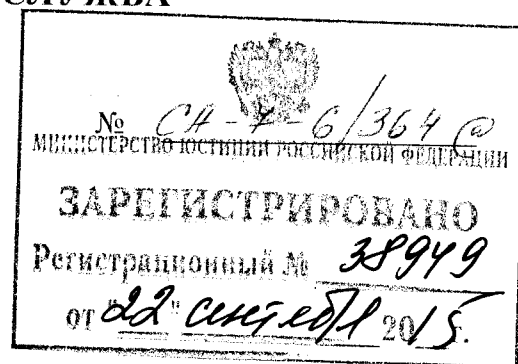 СЛУЖБА
№ СА-7-6/364@
МИНИСТЕРСТВО ЮСТИЦИИ РОССИЙСКОЙ ФЕДЕРАЦИИ
ЗАРЕГИСТРИРОВАНО
Регистрационный № 38949
от "22" сентября 2015.